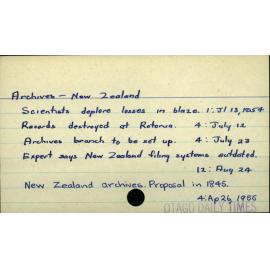 Archives - New Zealand
Scientists deplore losses in blaze. 1: Jl 13, 1954
Records destroyed at Rotorua. 4: July 12
Archives branch to be set up. 4: July 23
Expert says New Zealand filing systems outdated.
12: Aug 24
New Zealand archives. Proposal in 1845.
4: Ap 26 1955
OTAGO DAILY TIMES